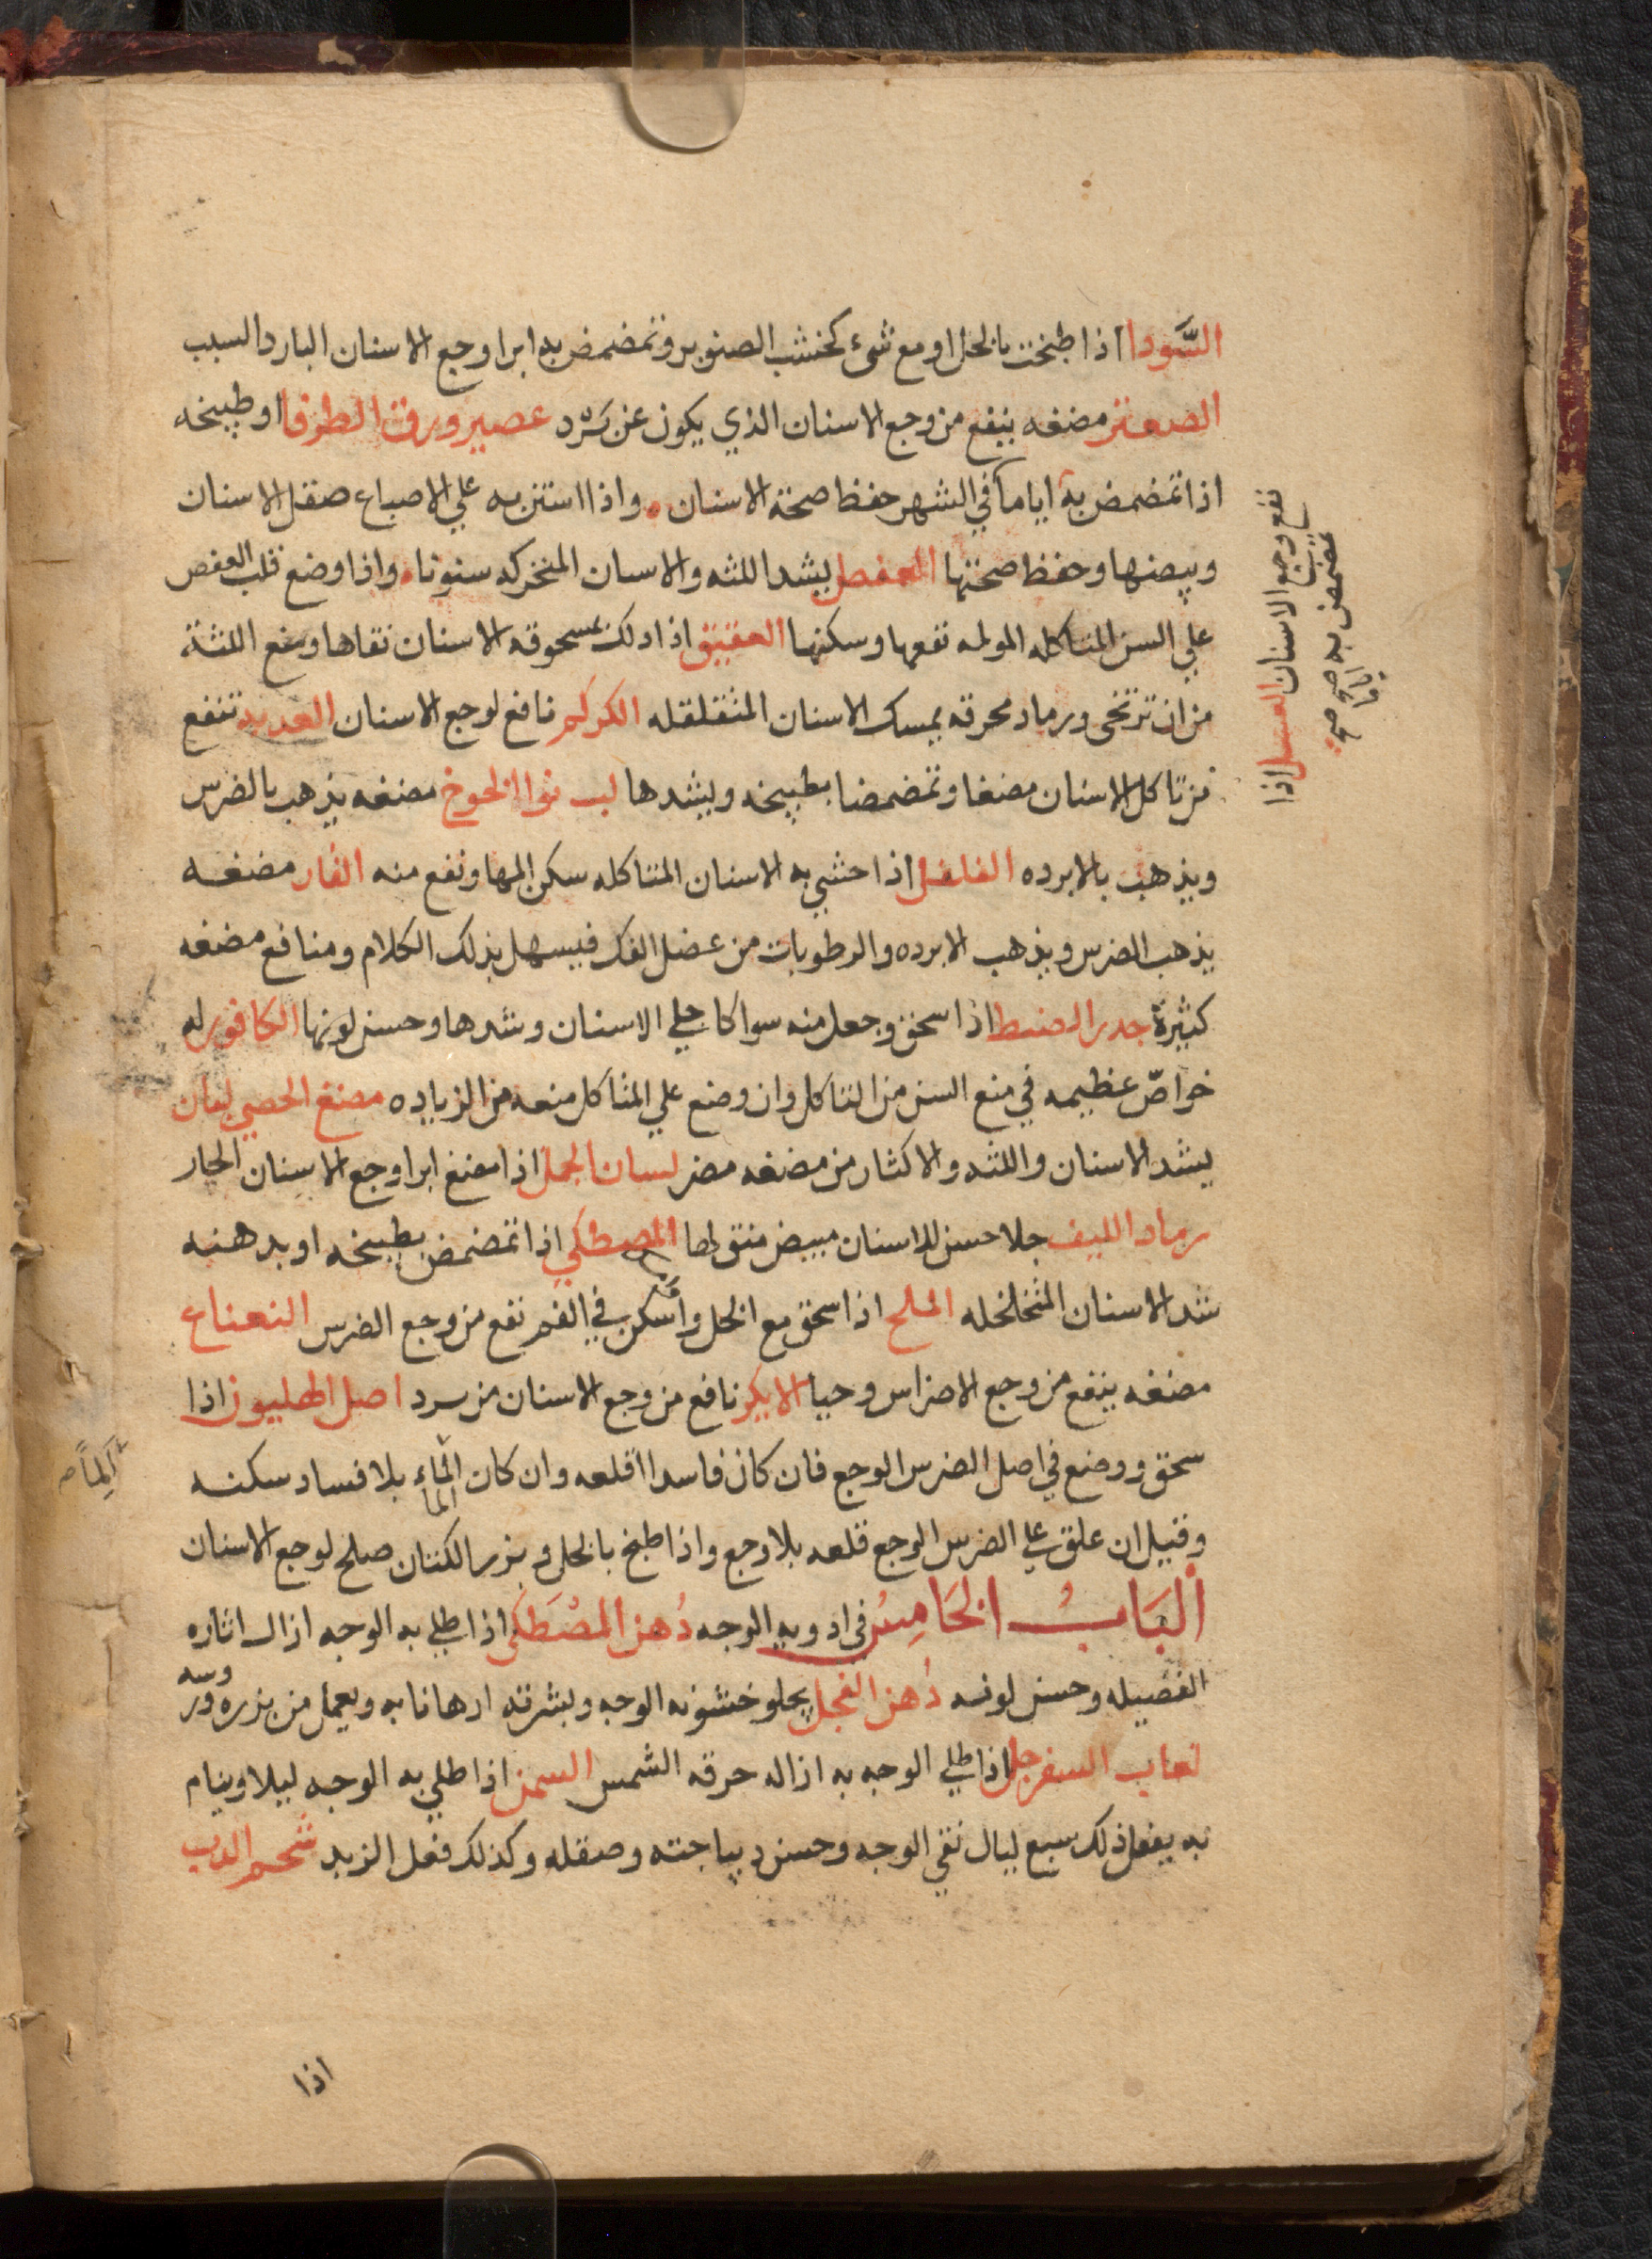 السَّودا اذا طبخت بالخل او مع شىء كخشب الصنوبر وتمضمض به ابرا وجع الاسنان البارد السبب
الصعتر مضغه ينفع من وجع الاسنان الذي يكون عن برد عصير ورق الطرفا او طبيخه
اذا تمضمض به اياماً في الشهر حفظ صحة الاسنان واذا استن به علي الاصباع صقل الاسنان
وبيضها وحفظ صحتها العفص يشد اللثه والاسنان المتحركه سنونا واذا وضع قلب العفص
علي السن المتاكله المولمه نفعها وسكنها العقيق اذا دلك بمسحوقه الاسنان نقاها ومنع اللثة
من ان ترتخى ورماد محرقه يمسك الاسنان المتقلقله الكركم نافع لوجع الاسنان تنفع
من تاكل الاسنان مضغا وتمضمضا بطبيخه ويشدها لب نوا الخوخ مضغه يذهب بالضرس
ويذهب بالابرده الفلفل اذا حشي به الاسنان المتاكله سكن المها ونفع منه الغار مضغه
يذهب الضرس ويذهب الابرده والرطوبات من عضل الفك فيسهل بذلك الكلام ومنافع مضغه
كثيرة اذا سحق وجعل منه سواكا جلي الاسنان وشدها وحسن لونها الكافور له
خواصّ عظيمه في منع السن من التاكل وان وضع علي المتاكل منعه من الزياده مضغ الحصي لبان
يشد الاسنان واللثه والاكثار من مضغه مضر لسان الحمل اذا مضغ ابرا وجع الاسنان الحار
رماد الليف جلا حسن للاسنان مبيض منق لها المصطكي اذا تمضمض بطبيخه او بدهنه
شد الاسنان المتخلخله الملح اذا سحق مع الخل وامسك في الفم نفع من وجع الضرس النعناع
مضغه ينفع من وجع الاضراس وحيا الايكر نافع من وجع الاسنان من برد اصل الهليون اذا
سحق ووضع في اصل الضرس الوجع فان كان فاسدا اقلعه وان كان الماء بلا فساد سكنه
الما
وقيل ان علق علي الضرس الوجع قلعه بلا وجع واذا طبخ بالخل وبزر الكتان صلح لوجع الاسنان
ألبَابُ الخَامِسُ في ادويه الوجه دُهن المصْطَكى اذا طلي به الوجه ازال اثاره
الفضيله وحسن لونه دُهن الفجل يجلو خشونه الوجه وبشرته ادهانا به ويعمل من بزره
لعاب السفرجل اذا طلي الوجه به ازاله حرقه الشمس السمن اذا طلي به الوجه ليلا وينام
به يفعل ذلك سبع ليال نقي الوجه وحسن ديباجته وصقله وكذلك فعل الزبد شحم الدب
اذا
نفع وجع الاسنان العسل اذا
تمضمض به
اياما صح
الماً